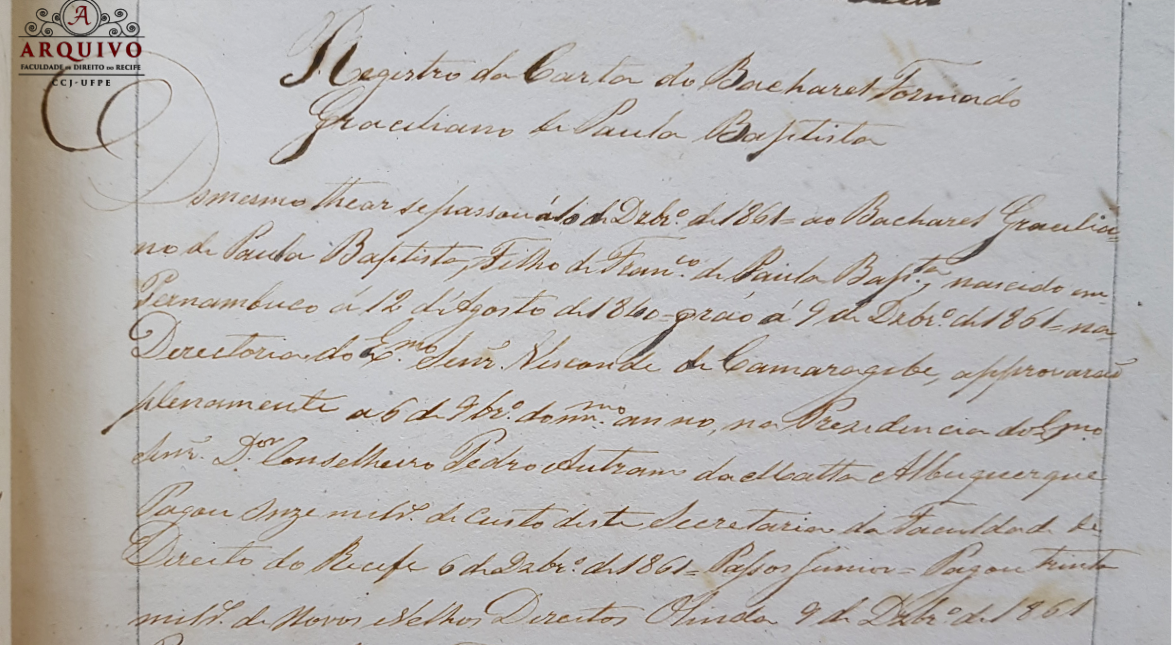 A
ARQUIVO
FACULDADE DE DIREITO DO RECIFE
CCJ-UFPE
Registro da Carta do Bacharel Formado
Graciliano de Paula Baptista
Do mesmo theor se passou á 10 de Dzbrº de 1861 = ao Bacharel Gracilia=
no de Paula Baptista, Filho de Franco de Paula Bapta, nascido em
Pernambuco á 12 d'Agosto de 1840 = gráo á 9 de Dzbrº de 1861 = na
Directoria do Exmo Senr. Visconde de Camaragibe, approvação
plenamente a 6 de 9brº do mmo anno, na Presidencia do Exmo
Senr. Dor Conselheiro Pedro Autran da Matta e Albuquerque
Pagou Onze mil rs. de custo deste Secretaria da Faculdade de
Direito do Recife 6 de Dzbrº de 1861 = Passos Junior = Pagou trinta
mil rs. de Novos e Velhos Direitos Olinda 9 de Dzbrº de 1861